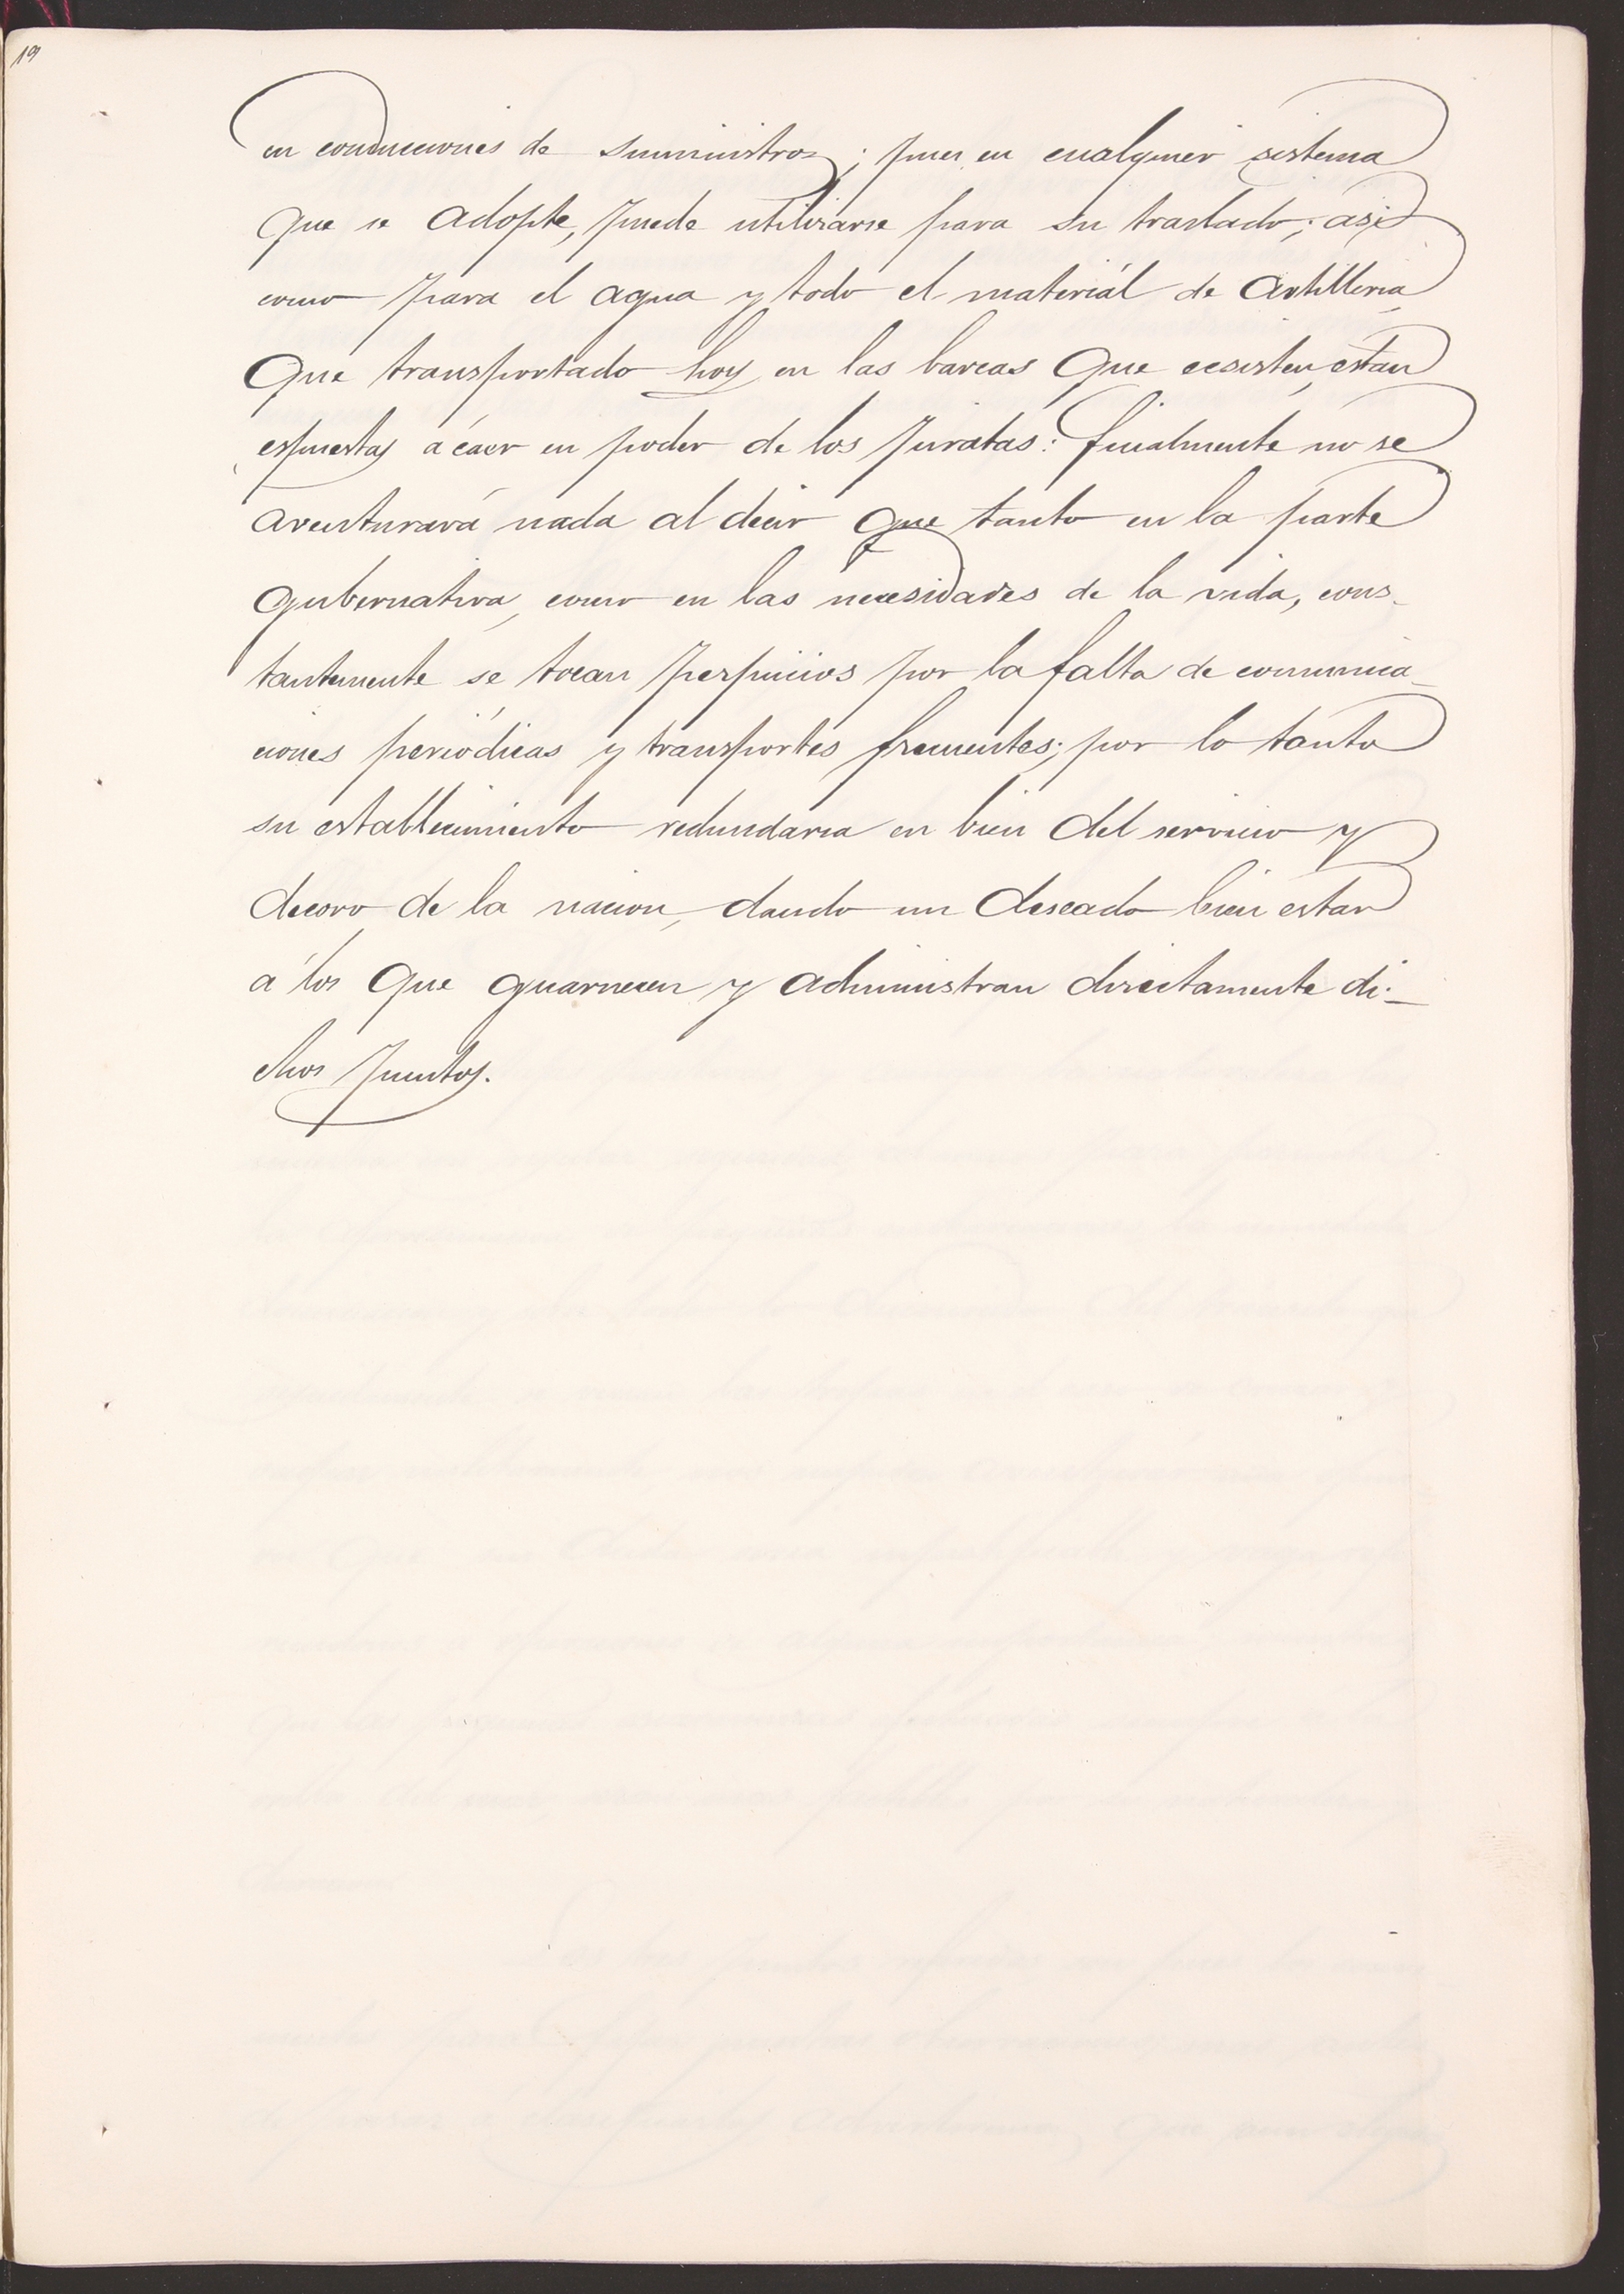 19
en conducciones de suministros; pues en cualquier sistema
que se adopte, puede utilizarse para su traslado; asi
como para el agua y todo el materiál de Artilleria,
que transportado hoy en las barcas que ecsisten, están
espuestas á caer en poder de los piratas: finalmente no se
aventurará nada al decir que tanto en la parte
gubernativa, como en las necesidades de la vida, cons-
tantemente se tocan perjuicios por la falta de comunica-
ciones periódicas y transportes frecuentes; por lo tanto
su establecimiento redundaria en bien del servicio y
decoro de la nacion, dando un deseado bien estar
á los que guarnecen y administran directamente di-
chos puntos.